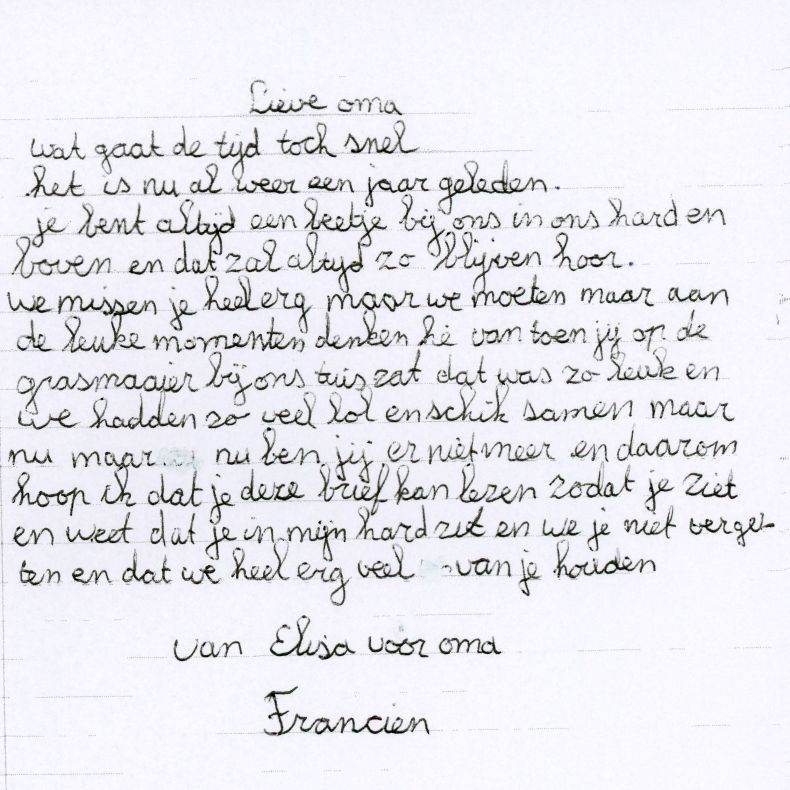 Lieve oma
wat gaat de tijd toch snel
het is nu al weer een jaar geleden.
je bent altijd een beetje bij ons in ons hard en
boven en dat zal altijd zo blijven hoor.
we missen je heel erg maar we moeten maar aan
de leuke momenten denken hè van toen jij op de
grasmaaier bij ons tuis zat dat was zo leuk en
we hadden zo veel lol en schik samen maar
nu maar nu ben jij er niet meer en daarom
hoop ik dat je deze brief kan lezen zodat je ziet
en weet dat je in mijn hard zit en we je niet verge-
ten en dat we heel erg veel van je houden
van Elisa voor oma
Francien